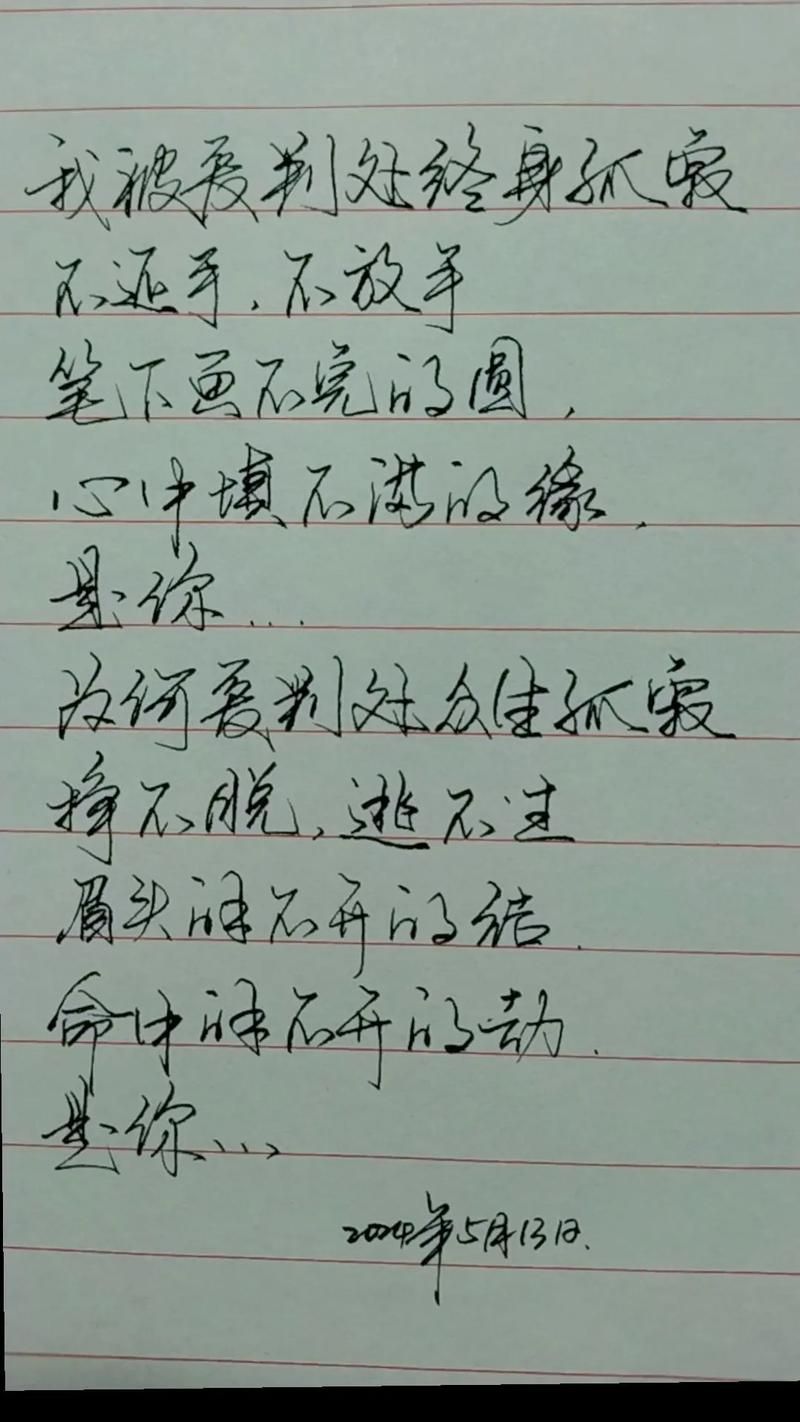 我被爱判处终身孤寂
不还手，不放手
笔下画不完的圆，
心中填不满的缘，
是你...
为何爱判处众生孤寂
挣不脱，逃不过
眉头解不开的结，
命中解不开的劫，
是你...
2024年5月13日.